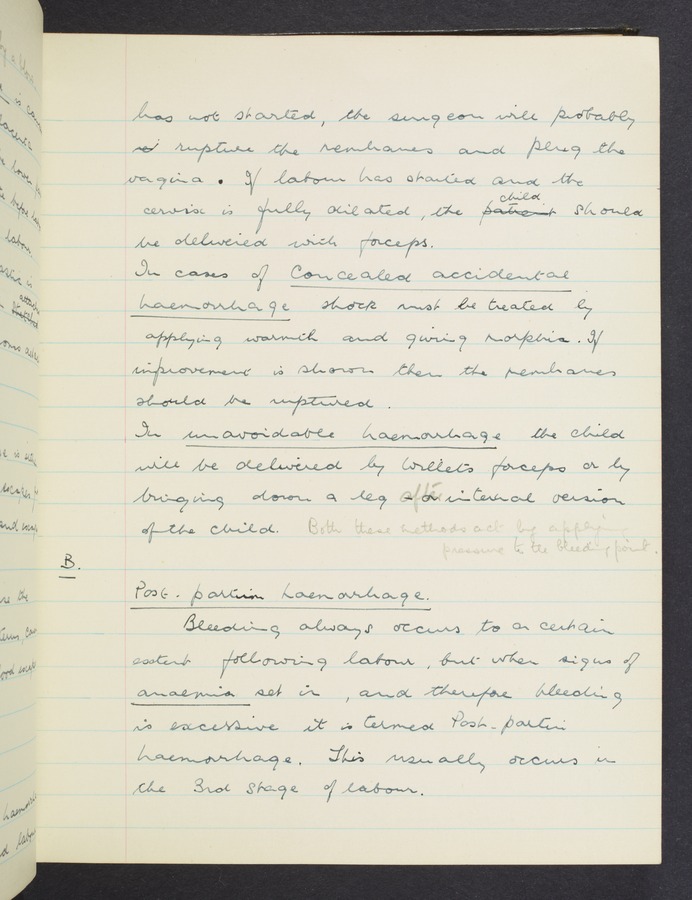 has not started, the surgeon will probably
rupture the membranes and plug the
vagina. If labour has started and the
child
cervix is fully dilated, the patient should
be delivered with forceps.
In cases of Concealed accidental
haemorrhage shock must be treated by
applying warmth and giving morphia. If
improvement is shown then the membranes
should be ruptured.
In unavoidable haemorrhage the child
will be delivered by Willets forceps or by
bringing down a leg after internal version
of the child. Both these methods act by applying
pressure to the bleeding point.
B.
Post-partum haemorrhage.
Bleeding always occurs to a certain
extent following labour, but when signs of
anaemia set in, and therefore bleeding
is excessive it is termed Post-partum
haemorrhage. This usually occurs in
the 3rd stage of labour.